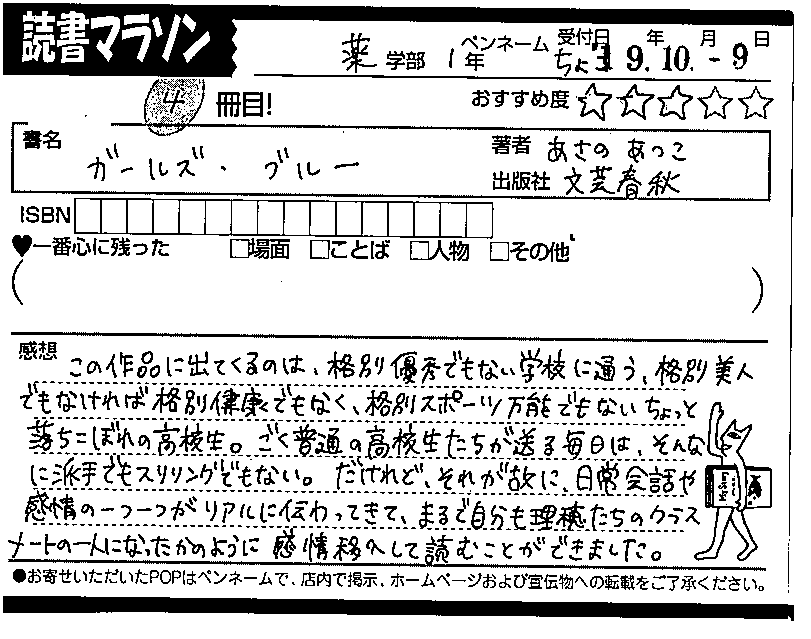 読書マラソン
薬 学部 1年 ペンネーム ちょ 受付日 19.10.-9 年 月 日
4 冊目! おすすめ度 ☆☆☆☆☆
書名 ガールズ・ブルー
著者 あさの あつこ
出版社 文芸春秋
ISBN
♥一番心に残った □場面 □ことば □人物 □その他
( )
感想 この作品に出てくるのは、格別優秀でもない学校に通う、格別美人
でもなければ格別健康でもなく、格別スポーツ万能でもないちょっと
落ちこぼれの高校生。ごく普通の高校生たちが送る毎日は、そんな
に派手でもスリリングでもない。だけれど、それが故に、日常会話や
感情の一つ一つがリアルに伝わってきて、まるで自分も理穂たちのクラス
メートの一人になったかのように感情移入して読むことができました。
●お寄せいただいたPOPはペンネームで、店内で掲示、ホームページおよび宣伝物への転載をご了承ください。